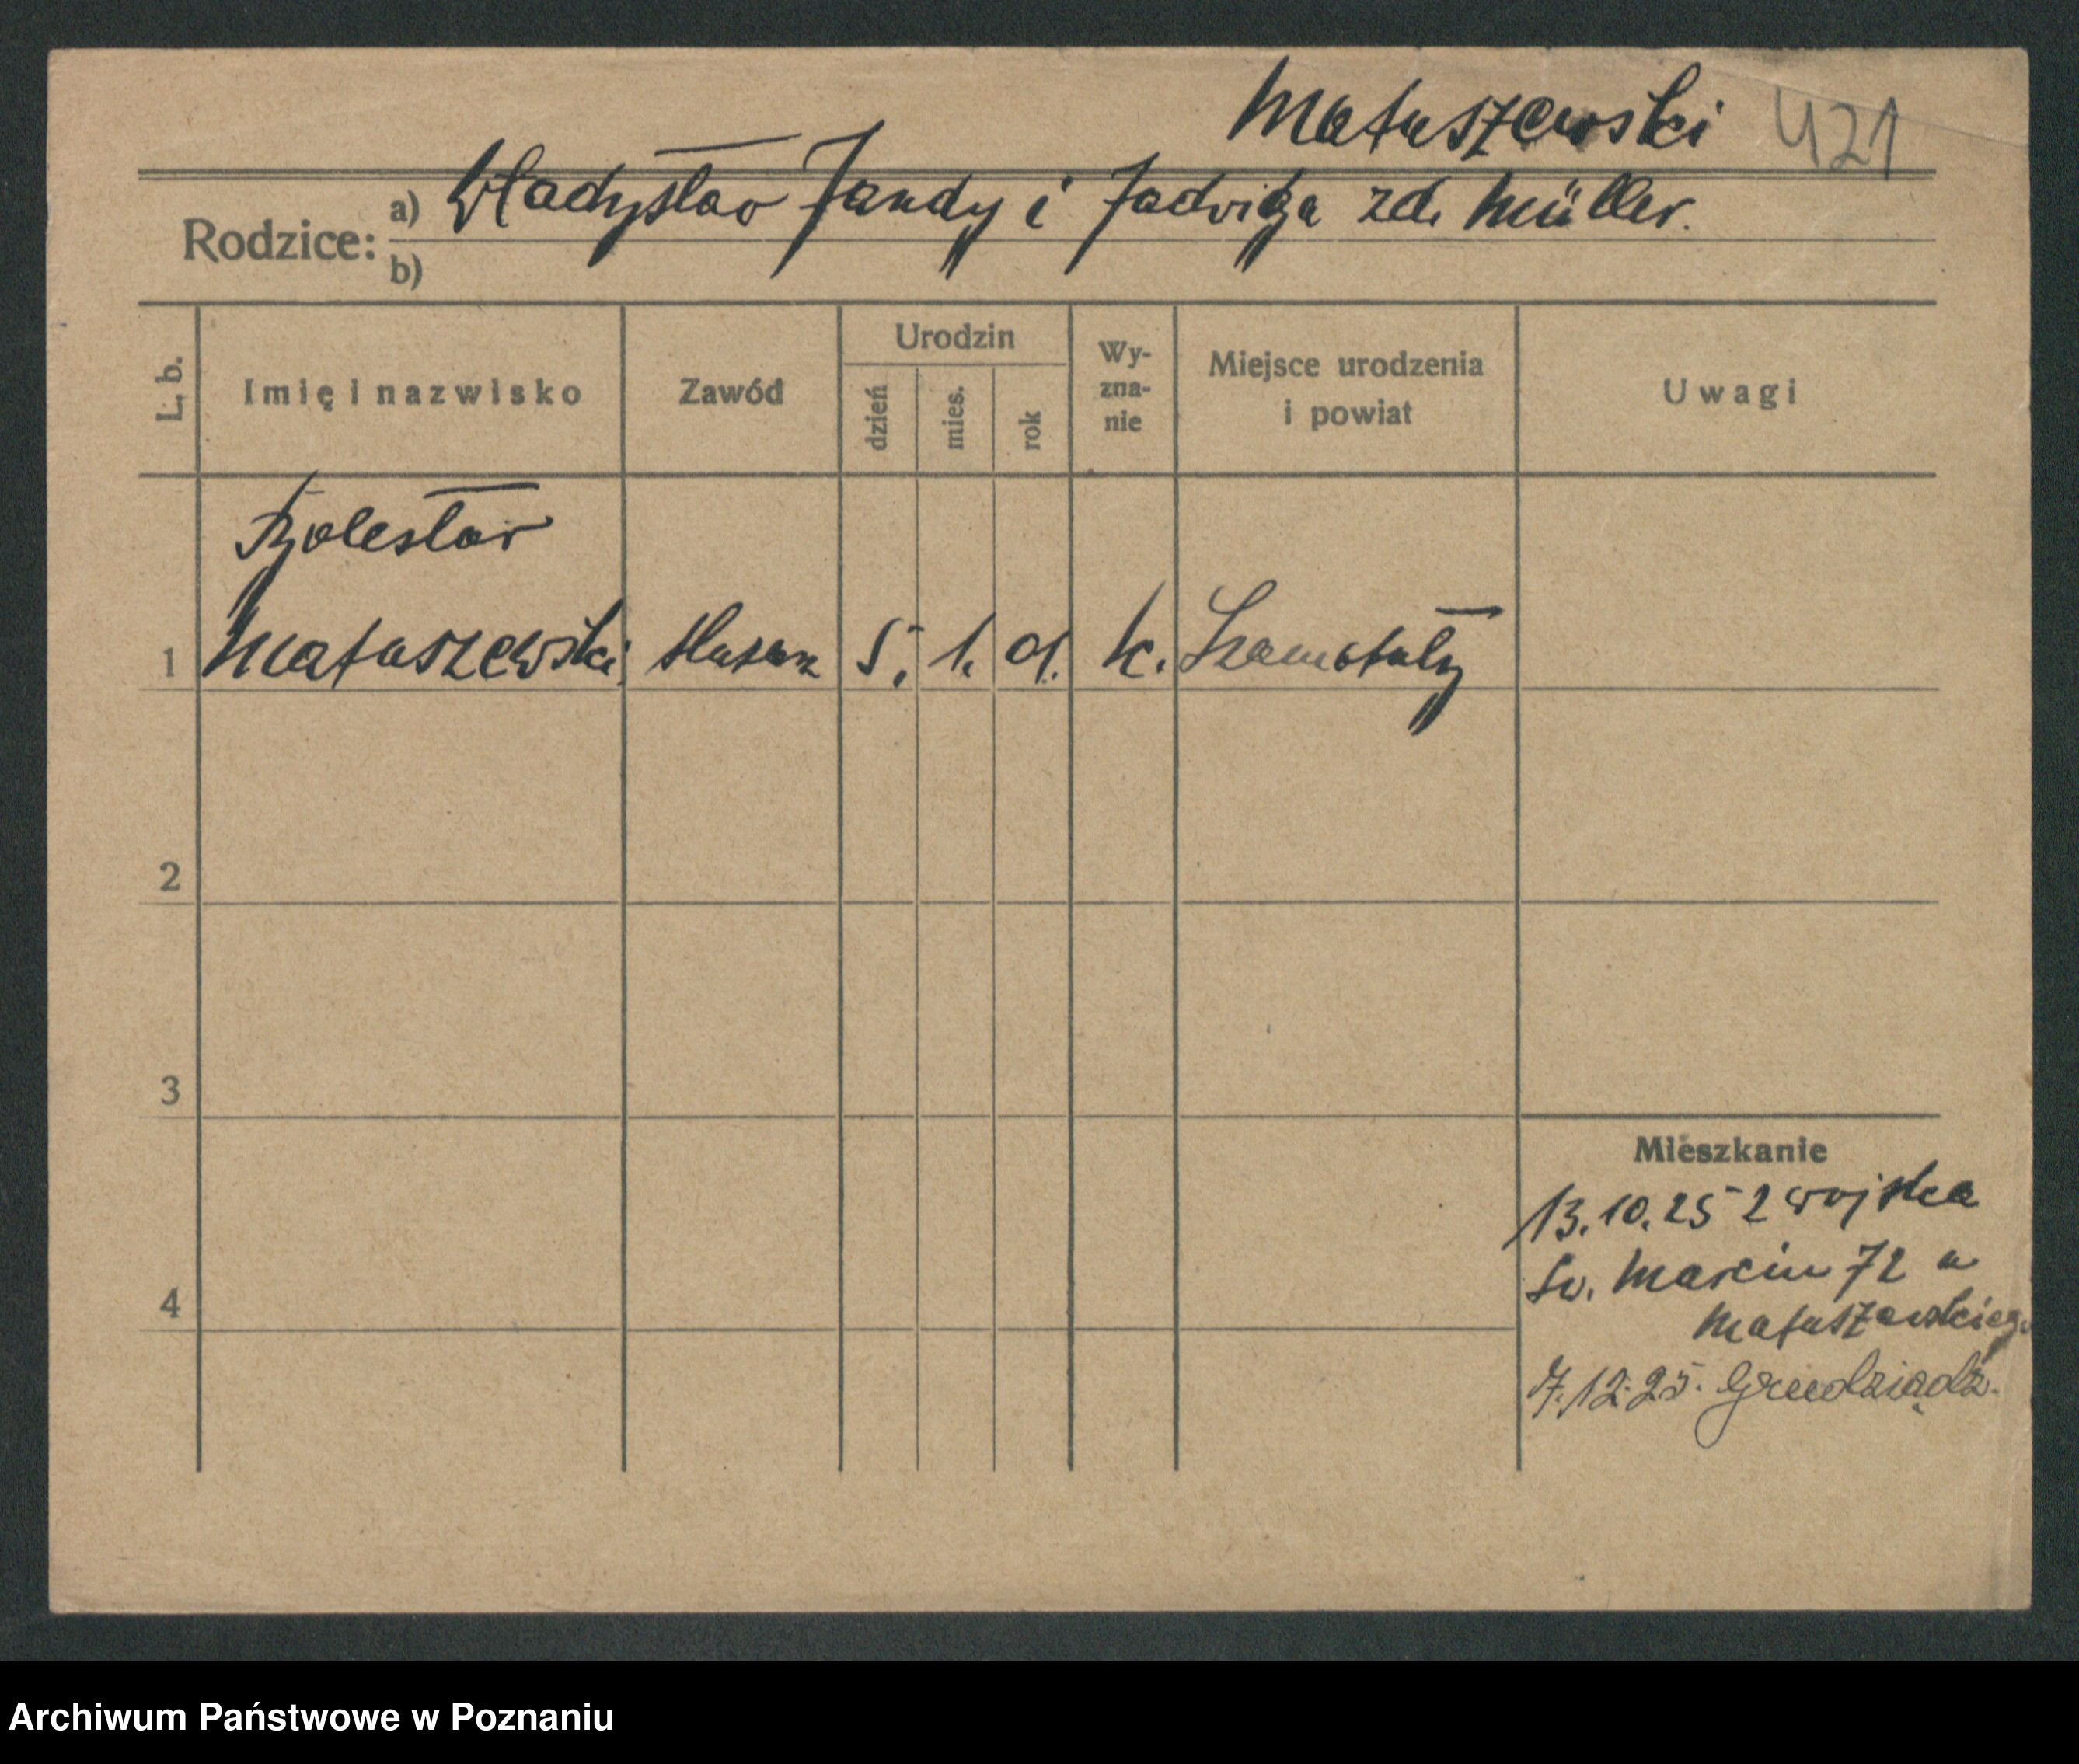 Matuszewski 421
Rodzice: a) Władysław Jandy i Jadwiga zd. Müller.
b)
L. b.
Imię i nazwisko
Zawód
Urodzin
dzień
mies.
rok
Wy-
zna-
nie
Miejsce urodzenia
i powiat
Uwagi
Bolesław
1 Matuszewski ślusarz 5. 1. 01. k. Szamotuły
2
3
4
Mieszkanie
13.10.25 z wojska
Św. Marcin 72 u
Matuszewskiego
7.12.25. Grudziądz.
Archiwum Państwowe w Poznaniu